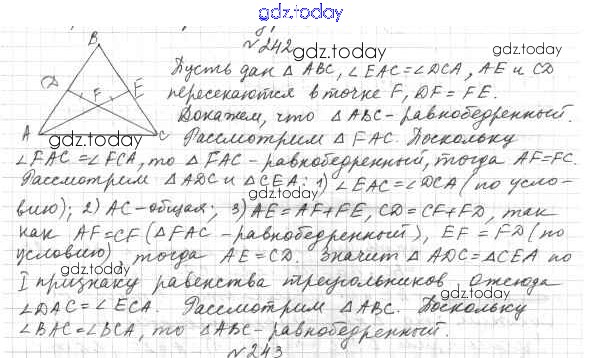 gdz.today
№242
gdz.today
gdz.today
B
D
F
E
A
C
gdz.today
Пусть дан △ ABC, ∠EAC=∠DCA, AE и CD
пересекаются в точке F, DF = FE.
Докажем, что △ABC-равнобедренный.
Рассмотрим △FAC. Поскольку
∠FAC=∠FCA, то △FAC-равнобедренный, тогда AF=FC.
gdz.today
Рассмотрим △ADC и △CEA: 1) ∠EAC=∠DCA (по усло-
gdz.today
вию); 2) AC-общая; 3) AE=AF+FE, CD=CF+FD, так
как AF=CF (△FAC -равнобедренный), EF = FD (по
условию), тогда AE=CD. Значит △ADC=△CEA по
gdz.today
I признаку равенства треугольников отсюда
gdz.today
∠DAC=∠ECA. Рассмотрим △ABC. Поскольку
∠BAC=∠BCA, то △ABC-равнобедренный.
gdz.today
№243